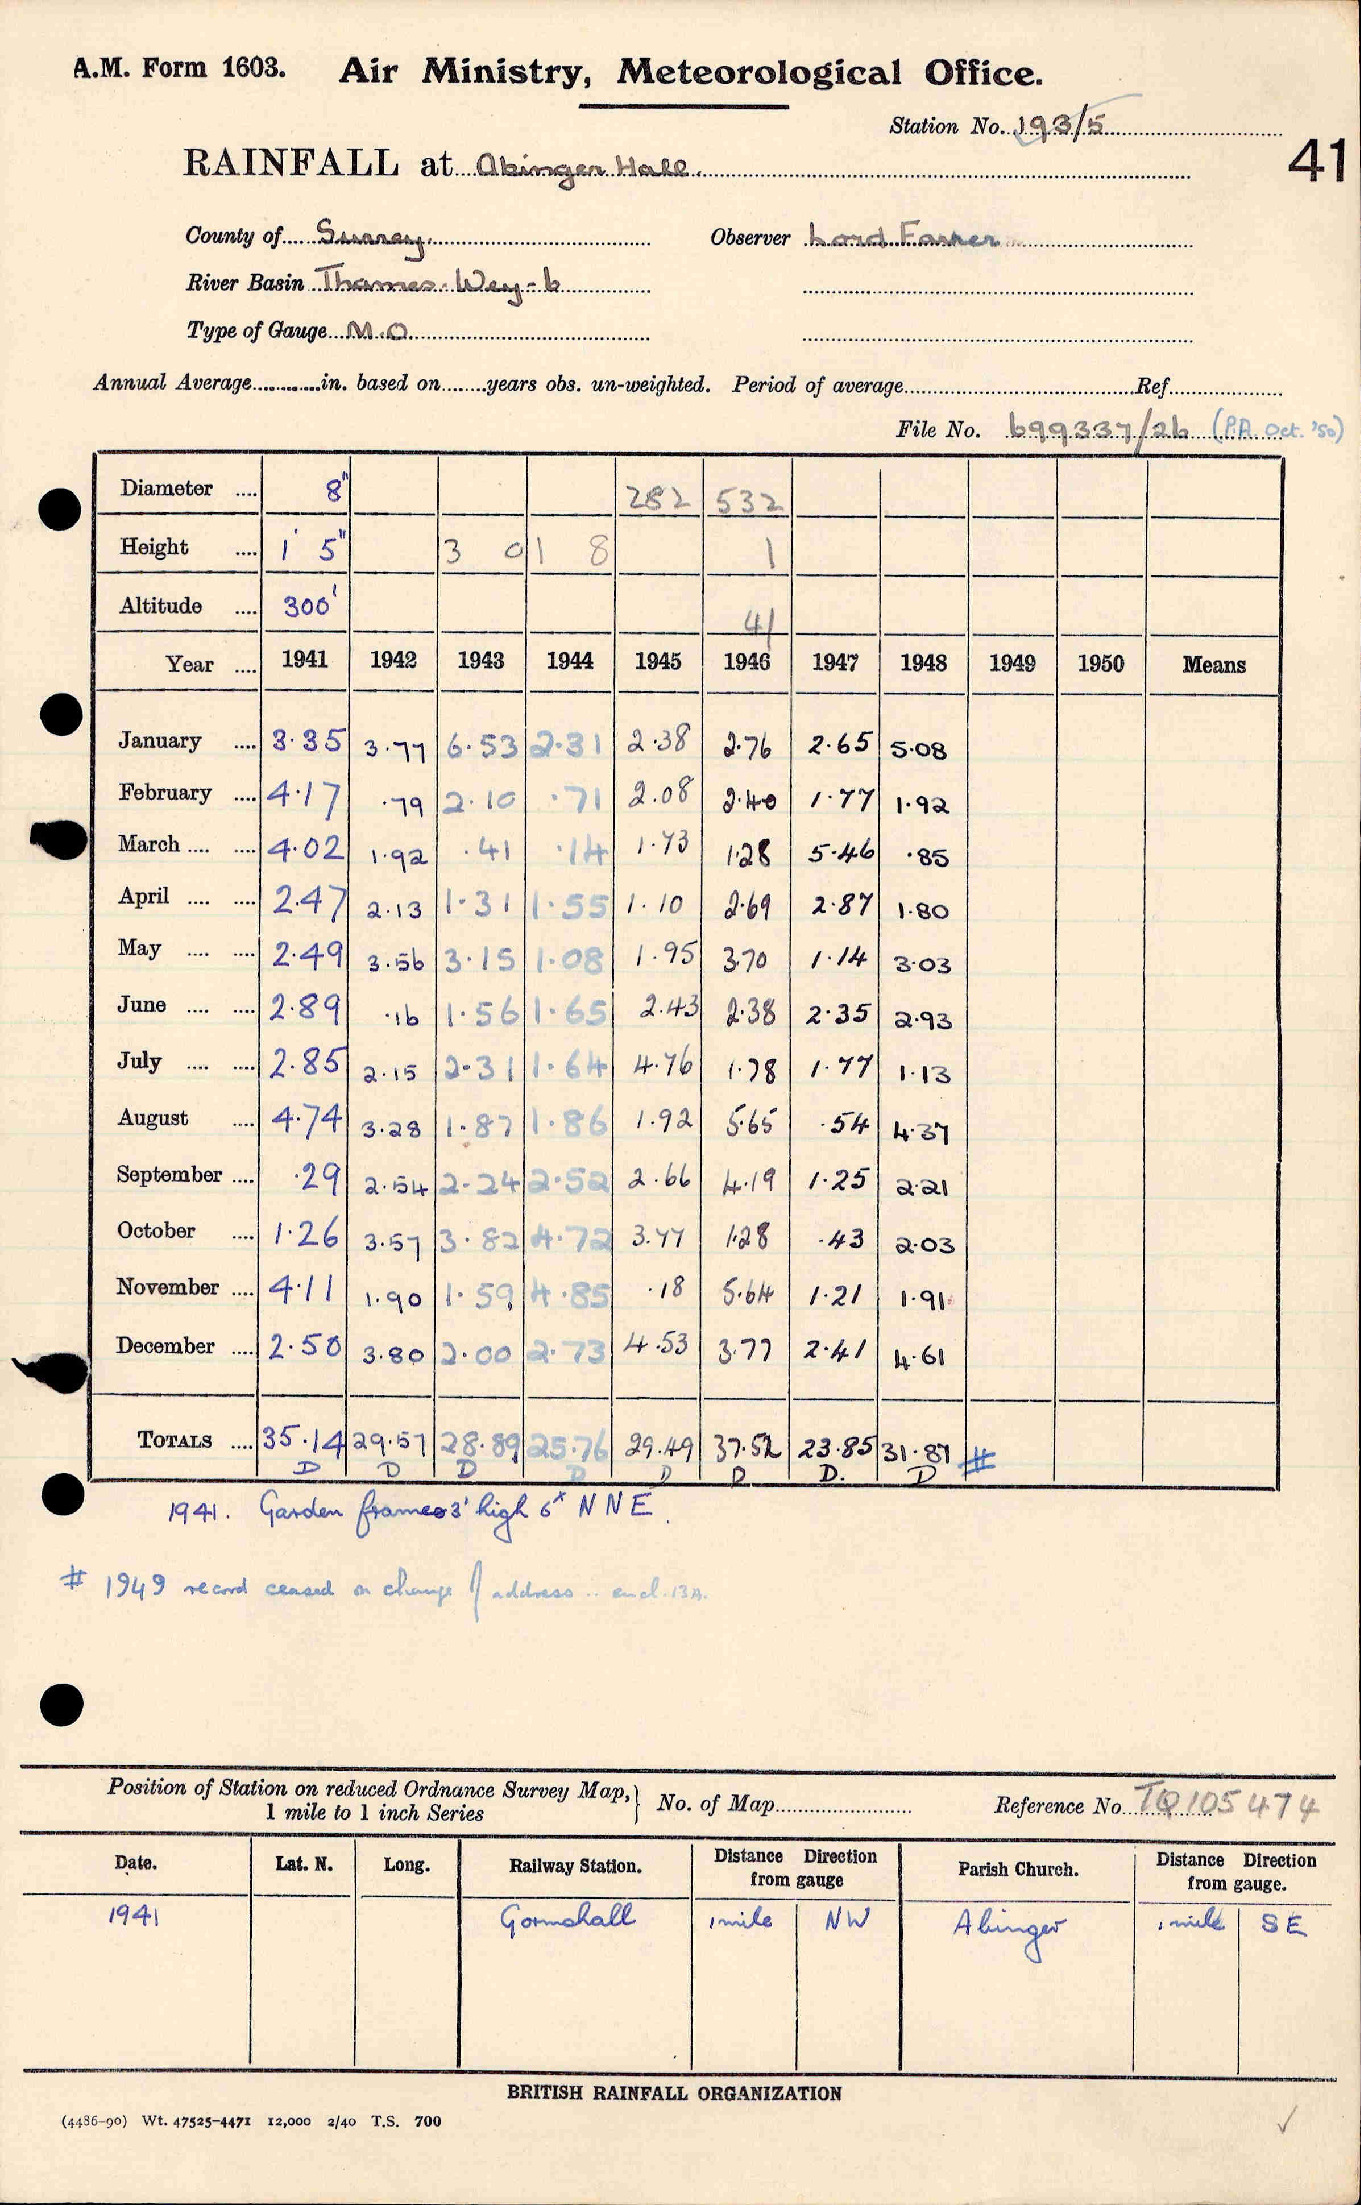 A.M. Form 1603. Air Ministry, Meteorological Office.
Station No. 193/5
41
RAINFALL at Abinger Hall.
County of Surrey. Observer Lord Farrer
River Basin Thames-Wey-b
Type of Gauge M.O.
Annual Average in. based on years obs. un-weighted. Period of average Ref
File No. 699337/26 (P.A. Oct. '50)
Diameter 8" 282 532
Height 1' 5" 3 0 1 8 1
Altitude 300' 41
Year 1941 1942 1943 1944 1945 1946 1947 1948 1949 1950 Means
January 3.35 3.77 6.53 2.31 2.38 2.76 2.65 5.08
February 4.17 .79 2.10 .71 2.08 2.40 1.77 1.92
March 4.02 1.92 .41 .14 1.73 1.28 5.46 .85
April 2.47 2.13 1.31 1.55 1.10 2.69 2.87 1.80
May 2.49 3.56 3.15 1.08 1.95 3.70 1.14 3.03
June 2.89 .16 1.56 1.65 2.43 2.38 2.35 2.93
July 2.85 2.15 2.31 1.64 4.76 1.78 1.77 1.13
August 4.74 3.28 1.87 1.86 1.92 5.65 .54 4.37
September .29 2.54 2.24 2.52 2.66 4.19 1.25 2.21
October 1.26 3.57 3.82 4.72 3.77 1.28 .43 2.03
November 4.11 1.90 1.59 4.85 .18 5.64 1.21 1.91
December 2.50 3.80 2.00 2.73 4.53 3.77 2.41 4.61
TOTALS 35.14 29.57 28.89 25.76 29.49 37.52 23.85 31.87 #
D D D D D D D. D
1941. Garden frames 3' high 6" NNE.
# 1949 record ceased on change of address .. encl. 13A.
Position of Station on reduced Ordnance Survey Map, 1 mile to 1 inch Series } No. of Map Reference No. TQ 105 474
Date. Lat. N. Long. Railway Station. Distance Direction from gauge Parish Church. Distance Direction from gauge.
1941 Gomshall 1 mile NW Abinger 1 mile SE
BRITISH RAINFALL ORGANIZATION
(4486-90) Wt. 47525-4471 12,000 2/40 T.S. 700